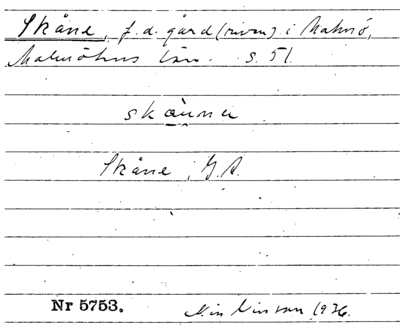 Skåne, f.d. gård (riven) i Malmö,
Malmöhus län. s. 51.
skäunna
Skåne, G.A.
Nr 5753.
1936.